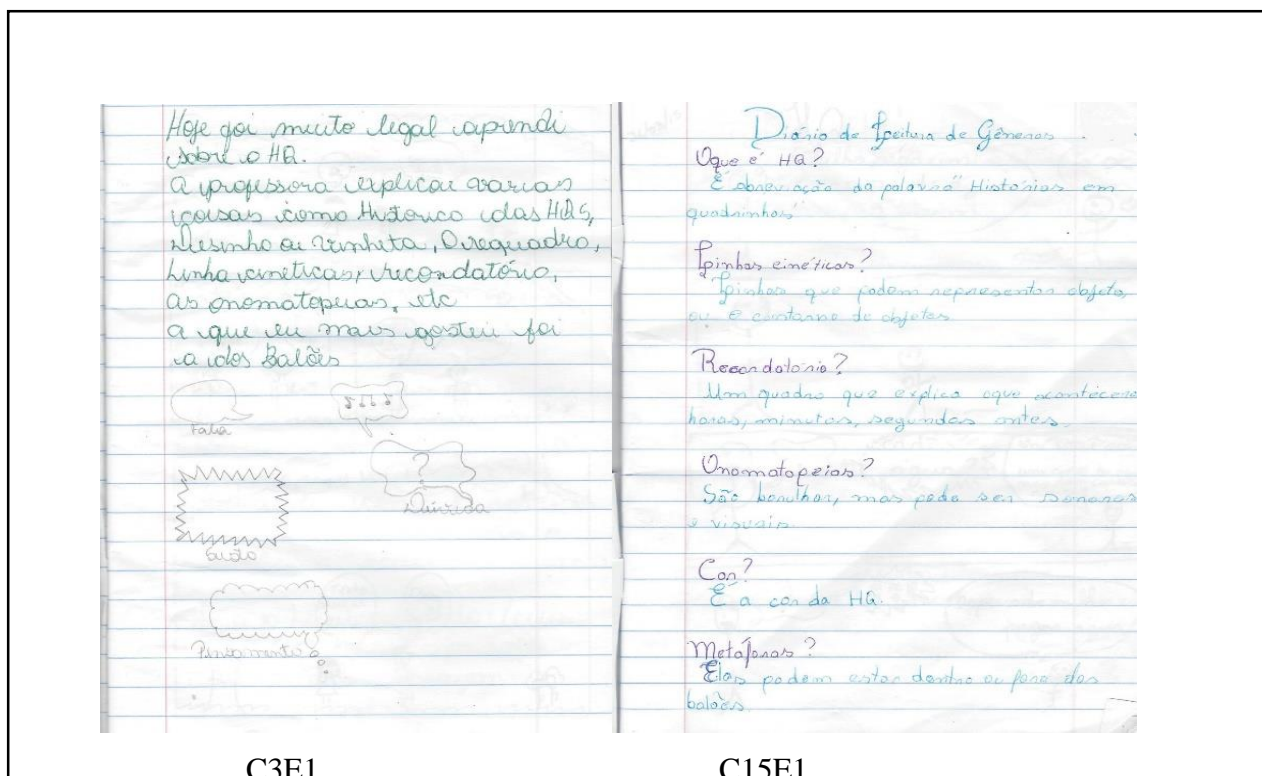 Hoje foi muito legal aprendi
sobre o HQ.
A professora explicou varias
coisas como Historico das HQS,
Desinho ou vinheta, O requadro,
Linha cineticas, recordatório,
as onomatopeias, etc
a que eu mais gostei foi
a dos Balões
Fala
Duvida
Pensamento
Diário de Leitura de Gêneros
Oque é HQ?
É abreviação da palavra "Histórias em
quadrinhos"
Linhas cinéticas?
Linhas que podem representar objeto,
ou é contorno de objetos.
Recordatório?
Um quadro que explica oque aconteceu
horas, minutos, segundos antes.
Onomatopeias?
São barulhos, mas pode ser sonoras
e visuais.
Cor?
É a cor da HQ.
Metáforas?
Elas podem estar dentro ou fora dos
balões.
C3E1
C15E1